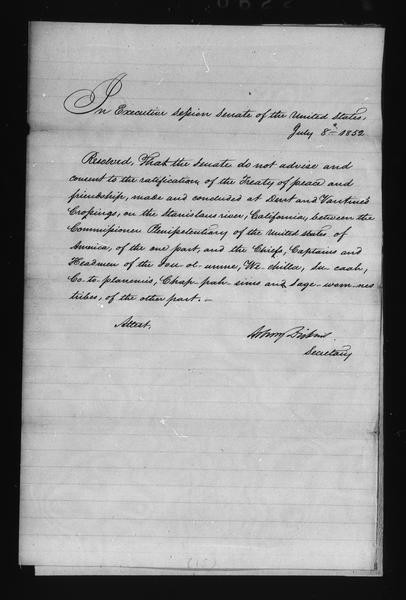 In Executive Session Senate of the United States,
July 8th 1852
Resolved, That the Senate do not advise and
consent to the ratification of the Treaty of peace and
friendship, made and concluded at Dent and Vantine's
Crossings, on the Stanislaus river, California, between the
Commissioner Plenipotentiary of the United States of
America, of the one part, and the Chiefs, Captains and
Headmen of the Iou-ol-umne, We-chilla, Su-caah,
Co-to-planemis, Chap-pah-sims and Sage-wom-nes
tribes, of the other part. –
Attest.
Asbury Dickins
Secretary